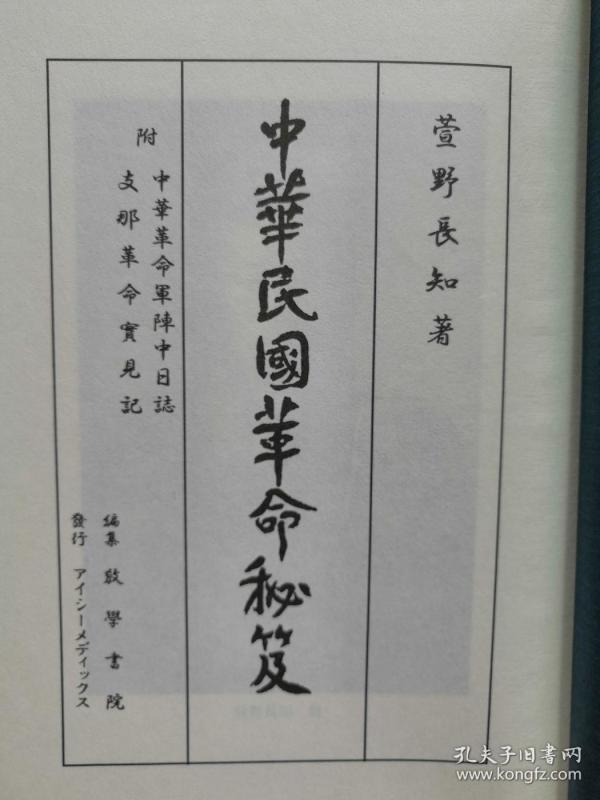 萱野長知著
中華民國革命秘笈
附
中華革命軍陣中日誌
支那革命實見記
編集 啟學書院
發行 アイシーメディックス
孔夫子旧书网
www.kongfz.com